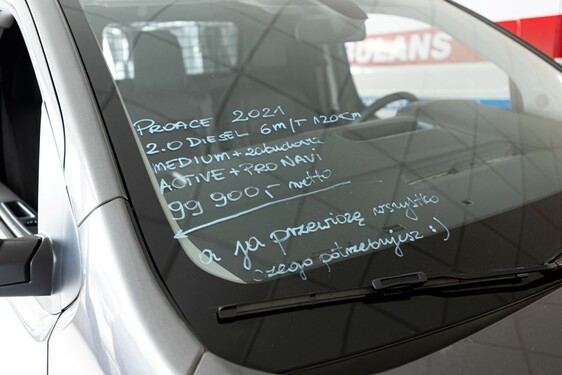 AMBULANS
PROACE 2021
2.0 DIESEL 6M/T 120KM
MEDIUM + zabudowa
ACTIVE + PRO NAVI
99 900,- netto
a ja przewiozę wszystko
czego potrzebujesz :)